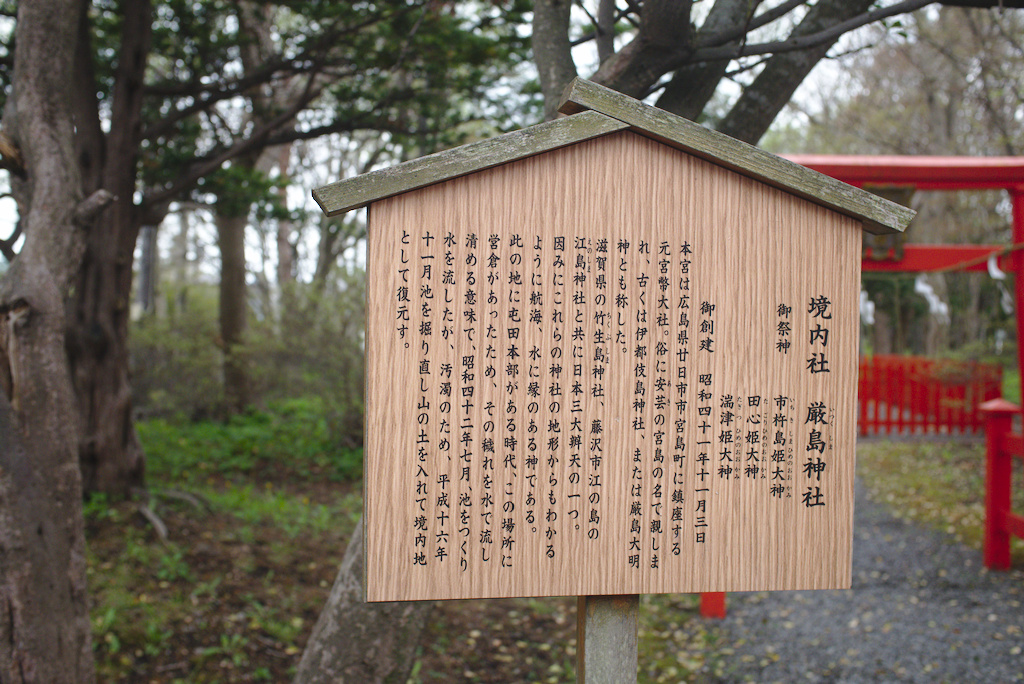 境内社　厳島神社
御祭神　市杵島姫大神
田心姫大神
湍津姫大神
御創建　昭和四十一年十一月三日
本宮は広島県廿日市市宮島町に鎮座する
元官幣大社。俗に安芸の宮島の名で親しま
れ、古くは伊都伎島神社、または厳島大明
神とも称した。
滋賀県の竹生島神社、藤沢市江の島の
江島神社と共に日本三大辨天の一つ。
因みにこれらの神社の地形からもわかる
ように航海、水に縁のある神である。
此の地に屯田本部がある時代、この場所に
営倉があったため、その穢れを水で流し
清める意味で、昭和四十二年七月、池をつくり
水を流したが、汚濁のため、平成十六年
十一月池を掘り直し山の土を入れて境内地
として復元す。